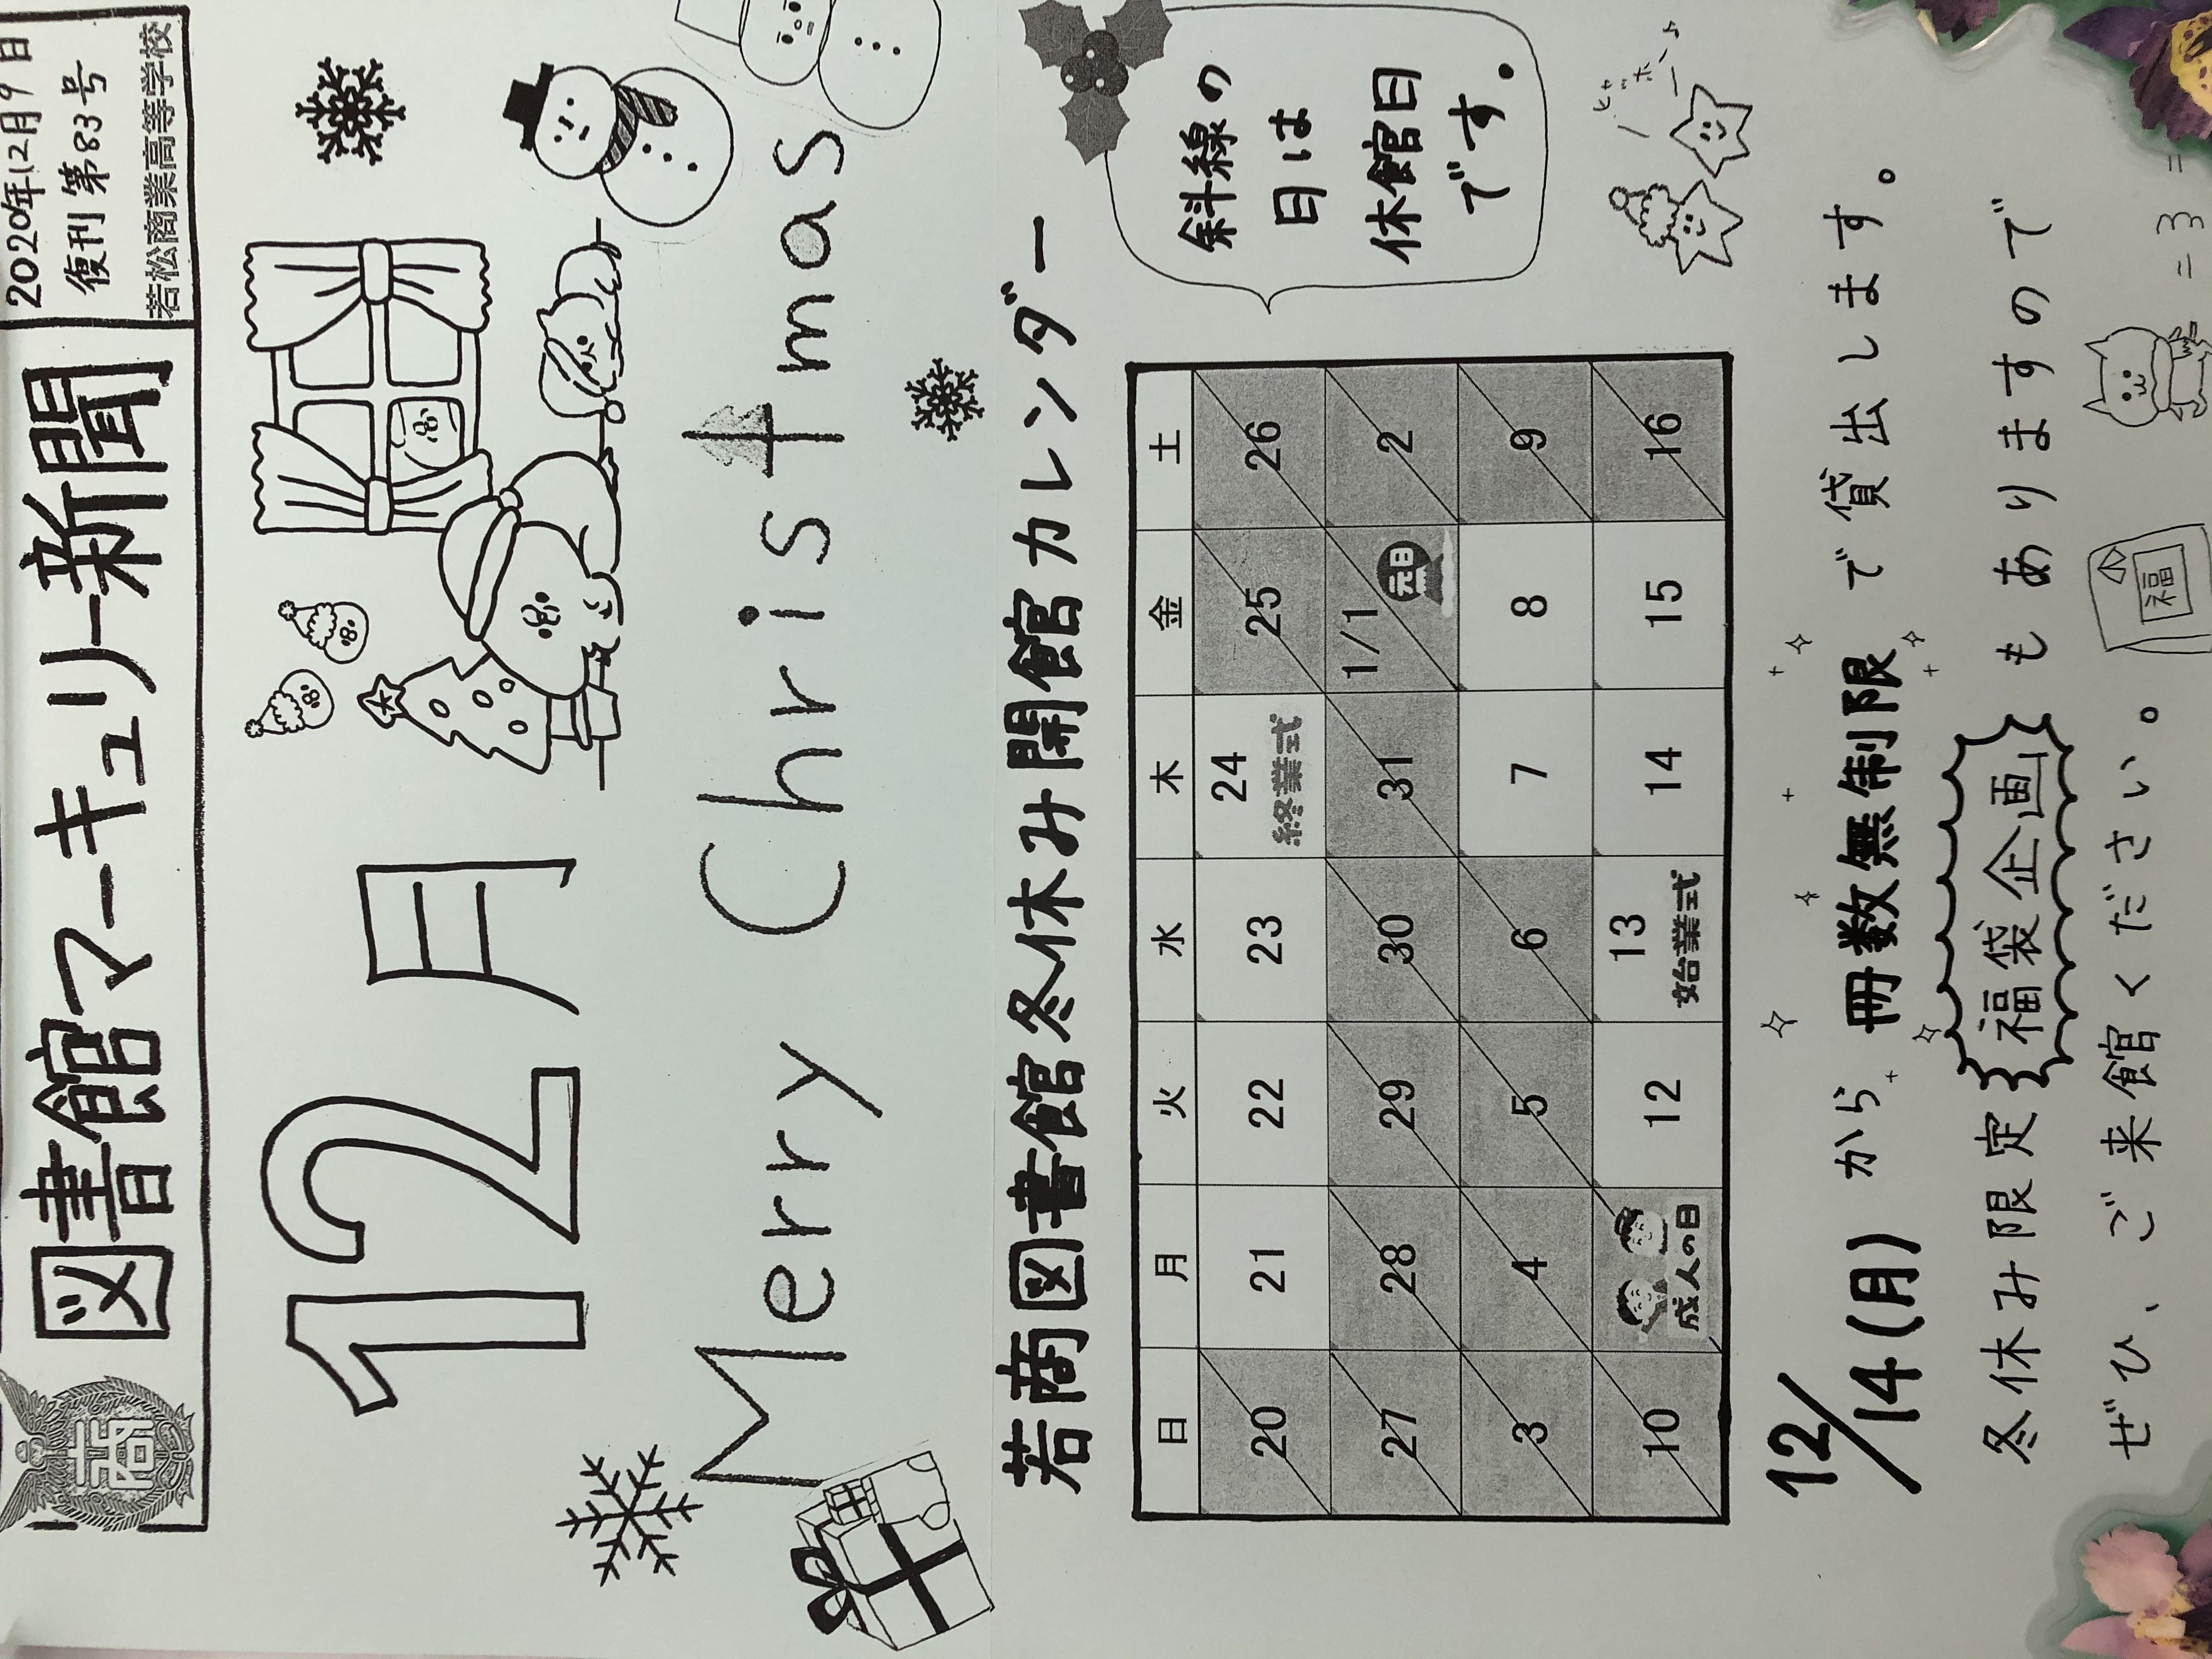 図書館マーキュリー新聞
2020年12月9日
復刊 第83号
若松商業高等学校
若商
12月
Merry Christmas
若商図書館冬休み開館カレンダー
日 月 火 水 木 金 土
20 21 22 23 24 25 26
終業式
27 28 29 30 31 1/1 2
元日
3 4 5 6 7 8 9
10 成人の日 12 13 14 15 16
始業式
斜線の
日は
休館日
です。
12/14(月) から 冊数無制限 で貸出します。
冬休み限定 福袋企画 もありますので
ぜひ、ご来館ください。
福